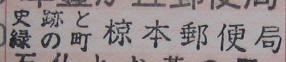 史跡と
緑の町 椋本郵便局